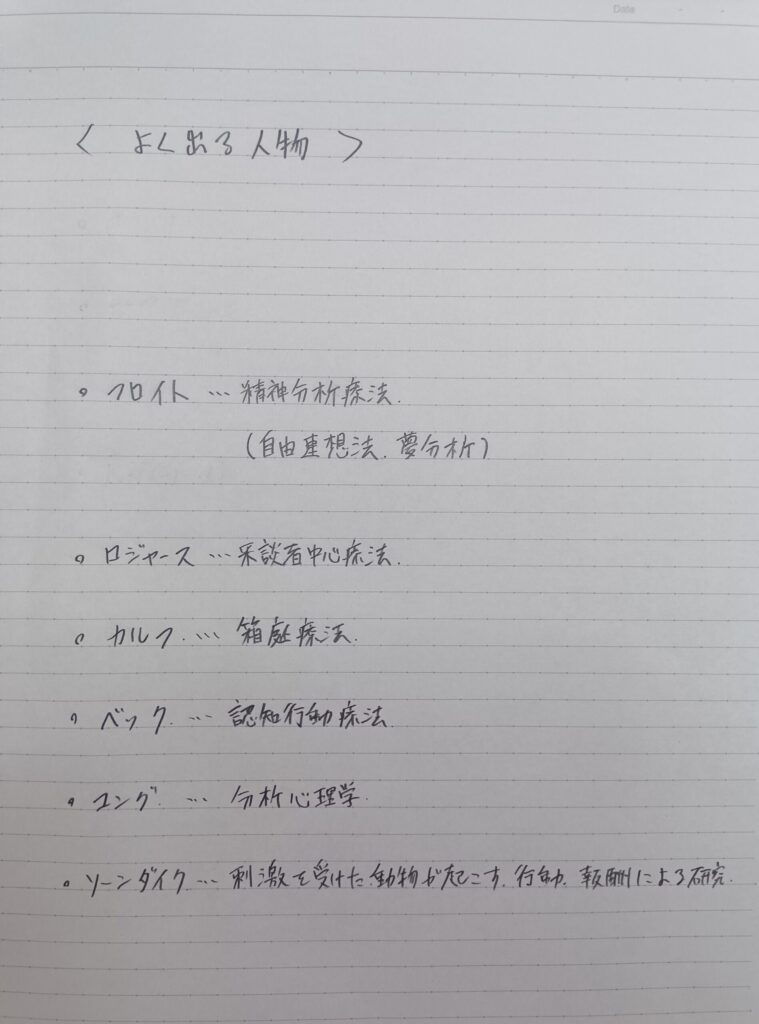 Date
< よく出る人物 >
。フロイト … 精神分析療法.
(自由連想法、夢分析)
。ロジャース … 来談者中心療法.
。カルフ. … 箱庭療法.
。ベック. … 認知行動療法
。ユング. … 分析心理学.
。ソーンダイク … 刺激を受けた動物が起こす行動、報酬による研究.